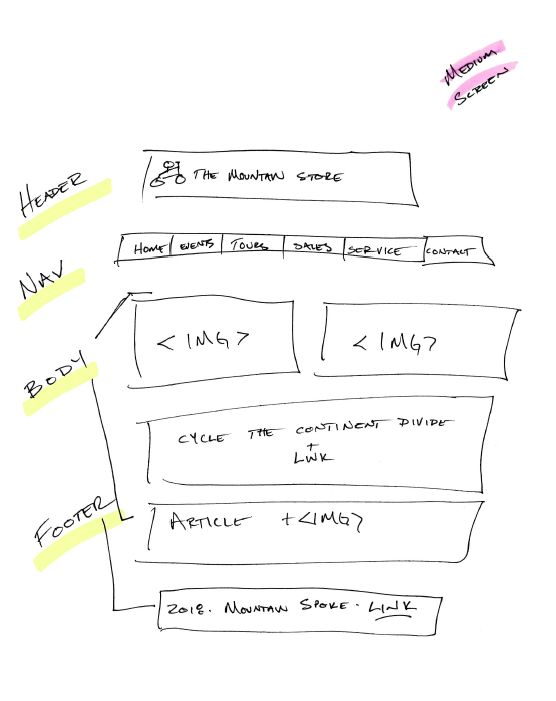 MEDIUM
SCREEN
HEADER
THE MOUNTAIN STORE
NAV
HOME EVENTS TOURS SALES SERVICE CONTACT
BODY
<IMG> <IMG>
CYCLE THE CONTINENT DIVIDE
+
LINK
FOOTER
ARTICLE +<IMG>
2018. MOUNTAIN SPOKE. LINK